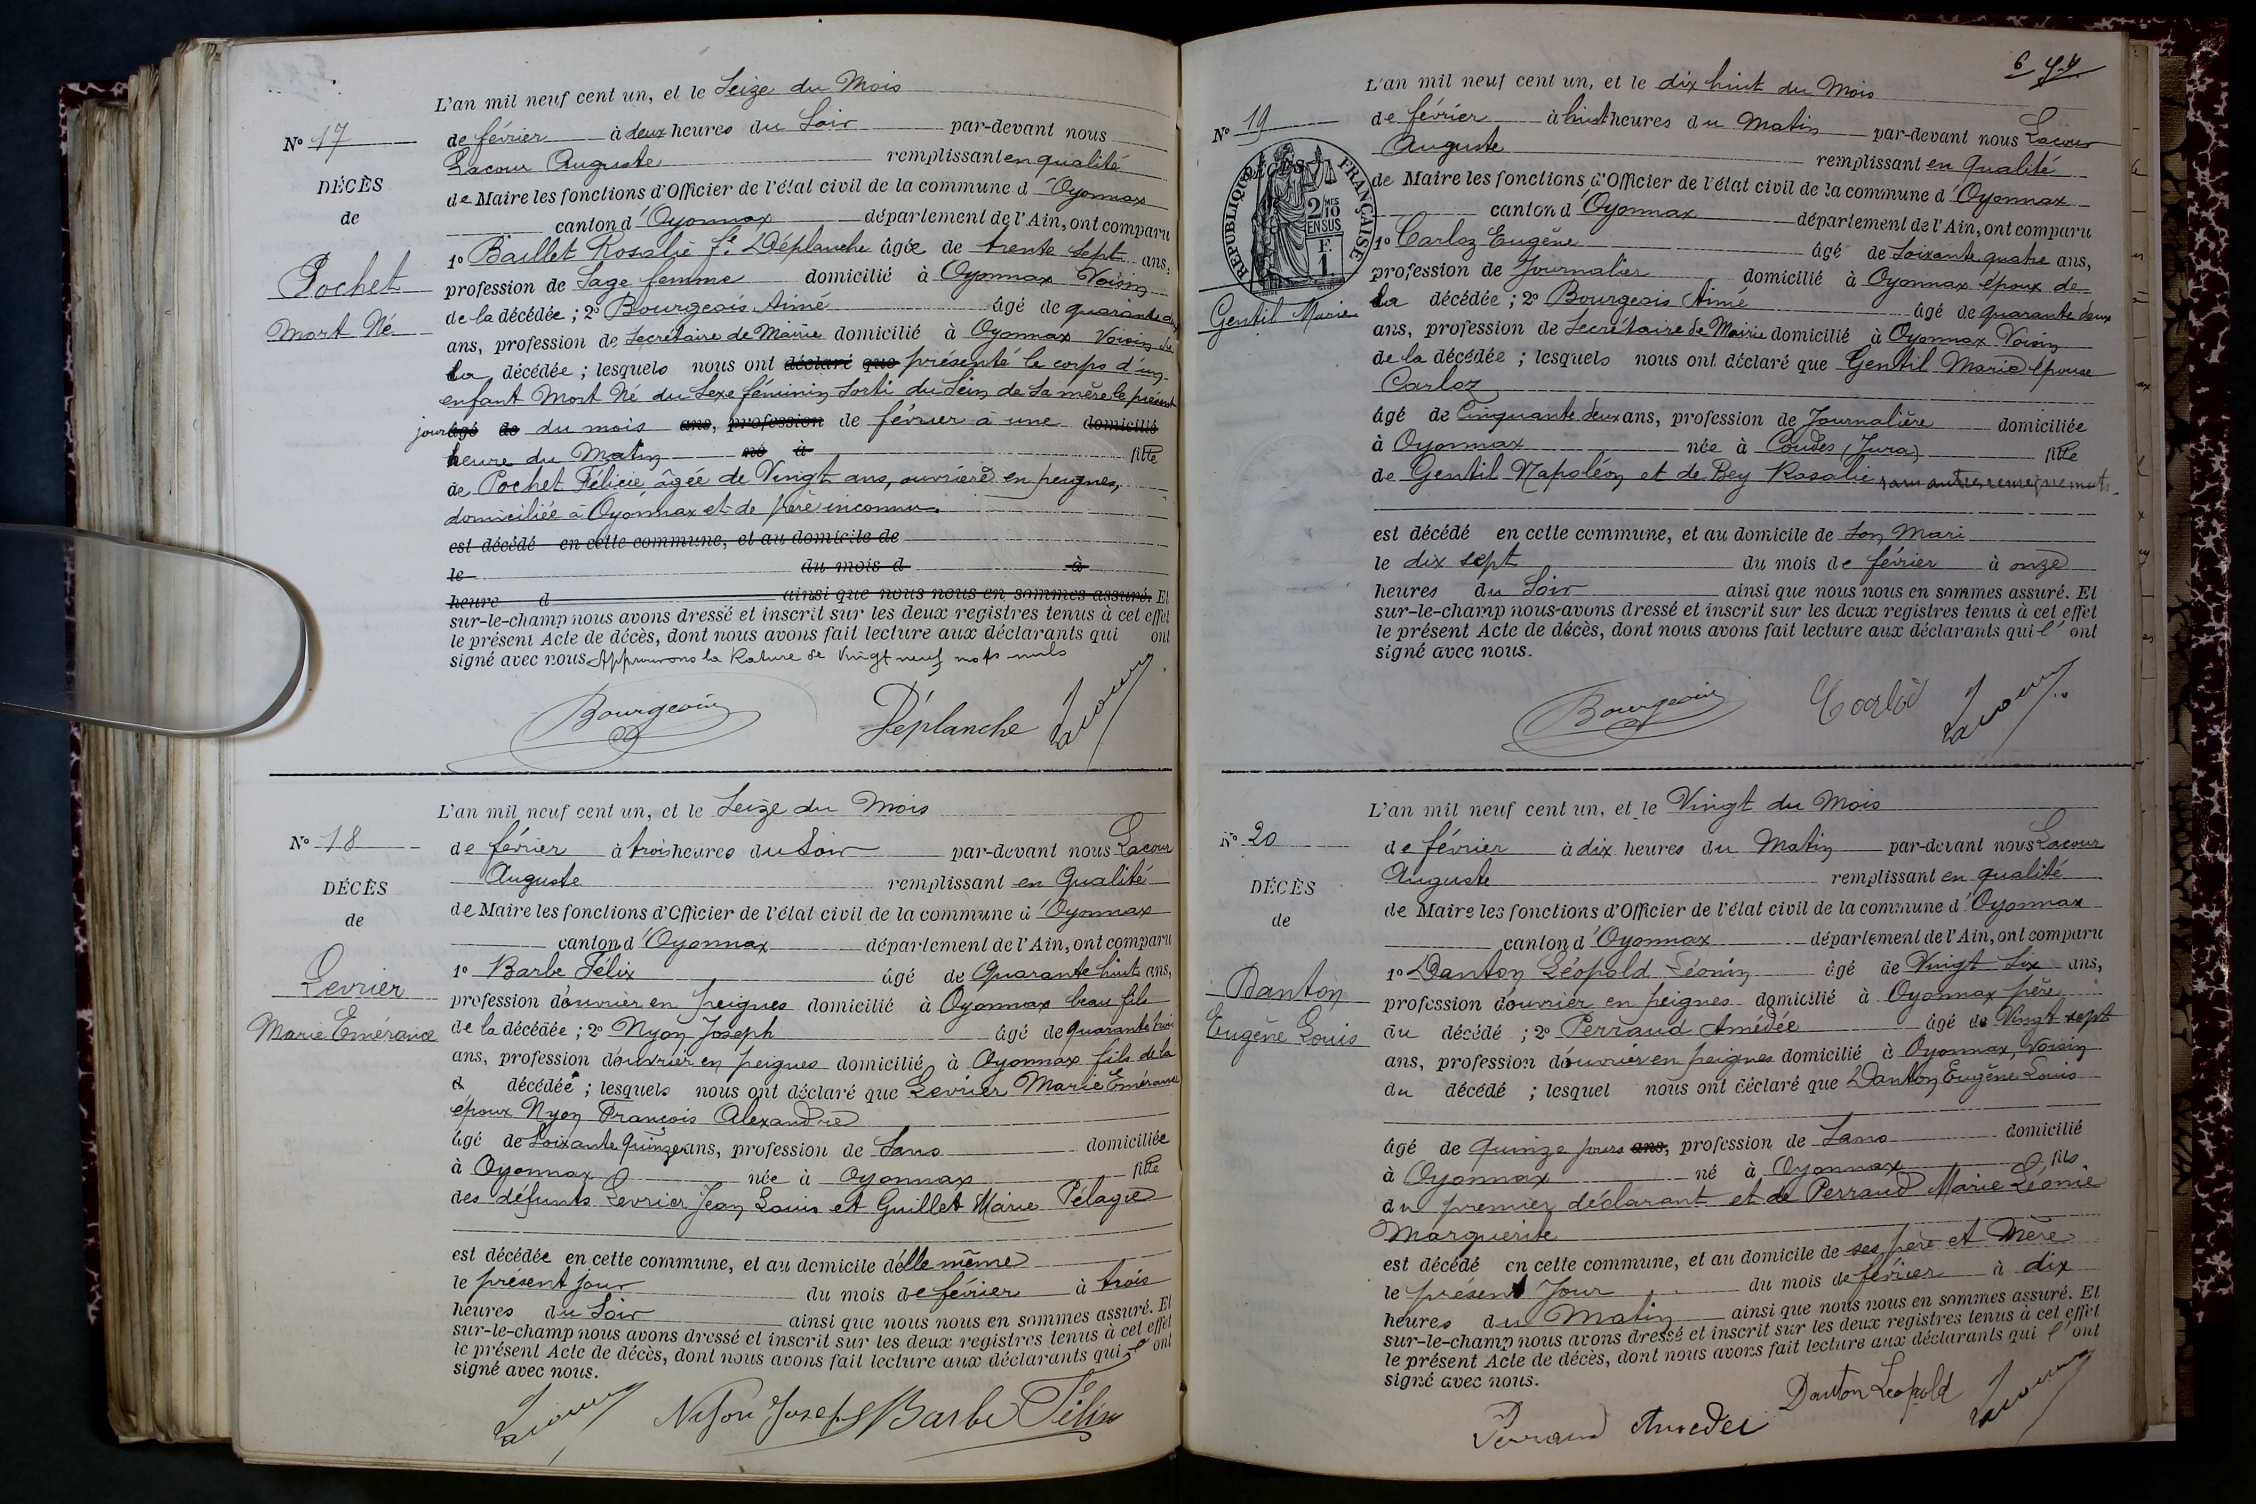 L'an mil neuf cent un, et le Seize du Mois
N° 17
de février à deux heures du Soir par-devant nous
Lacour Auguste remplissant en qualité
DÉCÈS
de Maire les fonctions d'Officier de l'état civil de la commune d'Oyonnax
de
canton d'Oyonnax département de l'Ain, ont comparu
1° Baillet Rosalie fe Déplanche âgée de trente sept ans,
Pochet
profession de Sage femme domicilié à Oyonnax Voisin
de la décédée ; 2° Bourgeois Aimé âgé de quarante deux
Mort Né
ans, profession de Secrétaire de Mairie domicilié à Oyonnax Voisin de
la décédée ; lesquels nous ont déclaré que présenté le corps d'un
enfant Mort Né du Sexe féminin Sorti du Sein de Sa mère le présent
jour âgé de du mois ans, profession de février à une domicilié
heure du Matin né à fille
de Pochet Félicie âgée de Vingt ans, ouvrière en peignes,
domiciliée à Oyonnax et de père inconnu.
est décédé en cette commune, et au domicile de
le du mois d à
heure d ainsi que nous nous en sommes assuré. Et
sur-le-champ nous avons dressé et inscrit sur les deux registres tenus à cet effet
le présent Acte de décès, dont nous avons fait lecture aux déclarants qui ont
signé avec nous. Approuvons la Rature de Vingt neuf mots nuls
Bourgeois Déplanche Lacour
L'an mil neuf cent un, et le Seize du Mois
N° 18
de février à trois heures du Soir par-devant nous Lacour
Auguste remplissant en Qualité
DÉCÈS
de Maire les fonctions d'Officier de l'état civil de la commune d'Oyonnax
de
canton d'Oyonnax département de l'Ain, ont comparu
1° Barbe Félix âgé de Quarante huit ans,
Levrier
profession d'ouvrier en peignes domicilié à Oyonnax beau fils
Marie Emérance
de la décédée ; 2° Nyon Joseph âgé de quarante trois
ans, profession d'ouvrier en peignes domicilié à Oyonnax fils de la
décédée ; lesquels nous ont déclaré que Levrier Marie Emérance
époux Nyon François Alexandre
âgé de Soixante Quinze ans, profession de Sans domiciliée
à Oyonnax née à Oyonnax fille
des défunts Levrier Jean Louis et Guillet Marie Pélagie
est décédée en cette commune, et au domicile d'elle même
le présent jour du mois de février à trois
heures du Soir ainsi que nous nous en sommes assuré. Et
sur-le-champ nous avons dressé et inscrit sur les deux registres tenus à cet effet
le présent Acte de décès, dont nous avons fait lecture aux déclarants qui l'ont
signé avec nous.
Lacour Nyon Joseph Barbe Félix
L'an mil neuf cent un, et le dix huit du Mois
N° 19
de février à huit heures du Matin par-devant nous Lacour
Auguste remplissant en Qualité
DÉCÈS
RÉPUBLIQUE FRANÇAISE
2 MES 10 EN SUS
F. 1
de Maire les fonctions d'Officier de l'état civil de la commune d'Oyonnax
canton d'Oyonnax département de l'Ain, ont comparu
1° Carloz Eugène âgé de Soixante quatre ans,
profession de Journalier domicilié à Oyonnax époux de
la décédée ; 2° Bourgeois Aimé âgé de quarante deux
Gentil Marie
ans, profession de Secrétaire de Mairie domicilié à Oyonnax Voisin
de la décédée ; lesquels nous ont déclaré que Gentil Marie épouse
Carloz
âgé de Cinquante deux ans, profession de Journalière domiciliée
à Oyonnax née à Coudes (Jura) fille
de Gentil Napoléon et de Bey Rosalie sans autres renseignements.
est décédé en cette commune, et au domicile de Son Mari
le dix sept du mois de février à onze
heures du Soir ainsi que nous nous en sommes assuré. Et
sur-le-champ nous avons dressé et inscrit sur les deux registres tenus à cet effet
le présent Acte de décès, dont nous avons fait lecture aux déclarants qui l'ont
signé avec nous.
Bourgeois Lacour
L'an mil neuf cent un, et le Vingt du Mois
N° 20
de février à dix heures du Matin par-devant nous Lacour
Auguste remplissant en qualité
DÉCÈS
de Maire les fonctions d'Officier de l'état civil de la commune d'Oyonnax
de
canton d'Oyonnax département de l'Ain, ont comparu
1° Danton Léopold Léonin âgé de Vingt Six ans,
Danton
profession d'ouvrier en peignes domicilié à Oyonnax père
Eugène Louis
du décédé ; 2° Perraud Amédée âgé de Vingt sept
ans, profession d'ouvrier en peignes domicilié à Oyonnax, Voisin
du décédé ; lesquel nous ont déclaré que Danton Eugène Louis
âgé de quinze jours ans, profession de Sans domicilié
à Oyonnax né à Oyonnax fils
du premier déclarant et de Perraud Marie Léonie
Marguerite
est décédé en cette commune, et au domicile de ses père et Mère
le présent Jour du mois de février à dix
heures du Matin ainsi que nous nous en sommes assuré. Et
sur-le-champ nous avons dressé et inscrit sur les deux registres tenus à cet effet
le présent Acte de décès, dont nous avons fait lecture aux déclarants qui l'ont
signé avec nous.
Perraud Amédée Danton Léopold Lacour